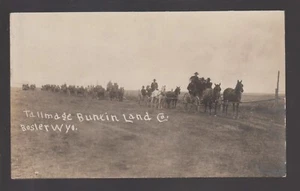 Tallmadge Buntin Land Co.
Bosler Wyo.